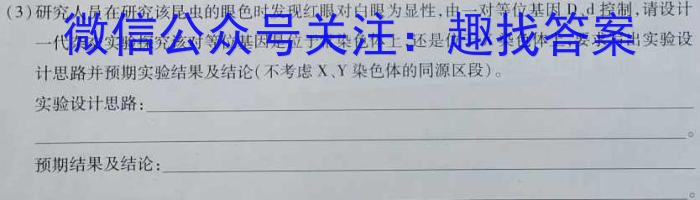 (3)研究人员在研究该昆虫的眼色时发现红眼对白眼为显性,由一对等位基因D、d控制,请设计
一代杂交实验探究该对等位基因是位于 染色体上还是位 染色体 ,要求写出实验设
微信公众号关注：趣找答案
计思路并预期实验结果及结论(不考虑X、Y染色体的同源区段)。
实验设计思路:
。
预期结果及结论:
。